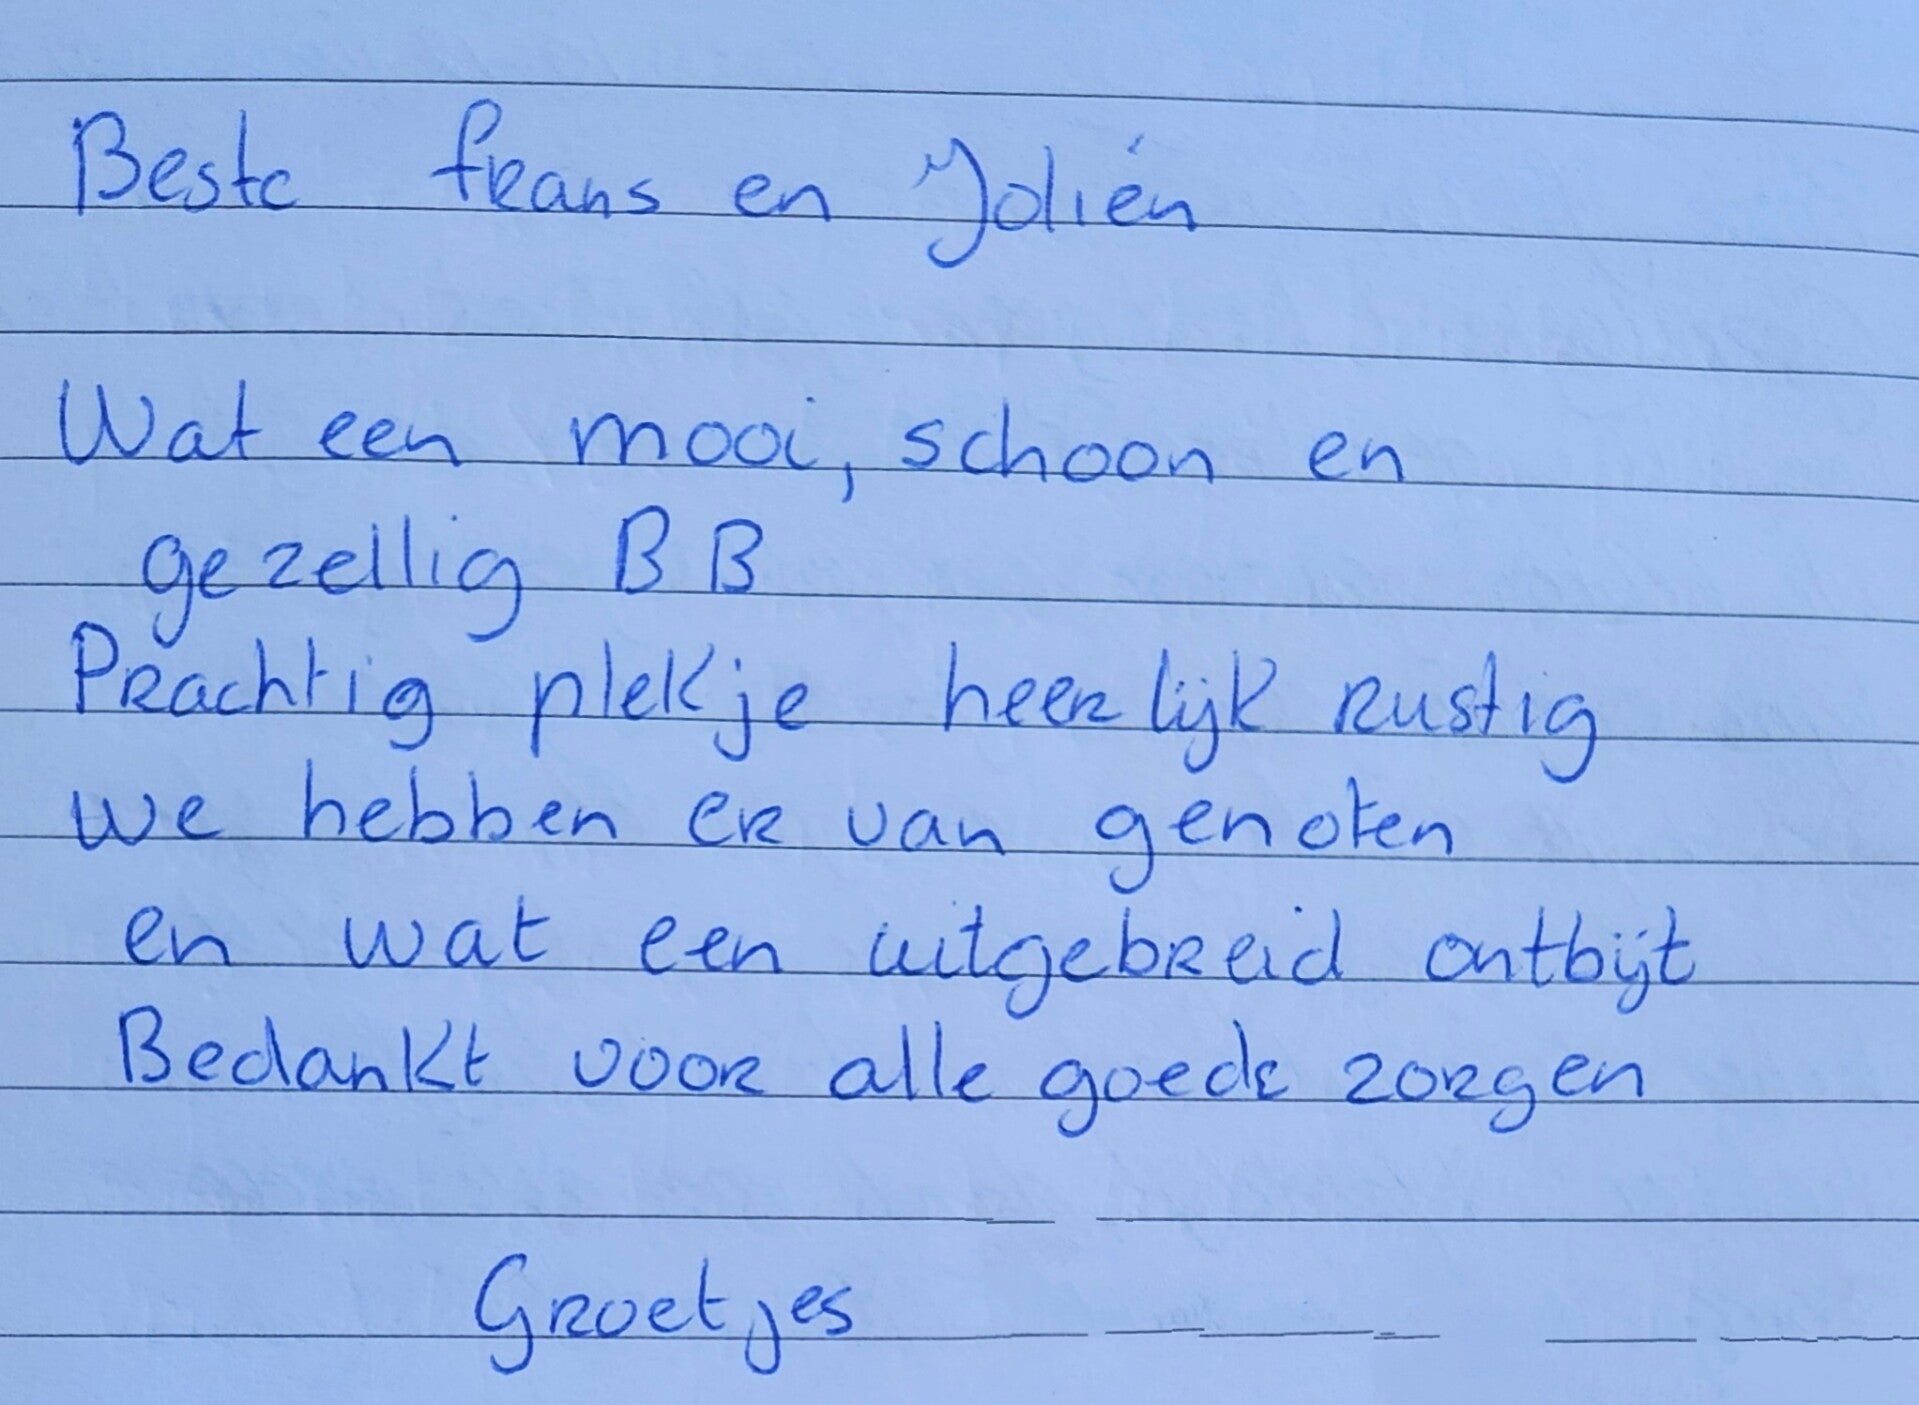 Beste frans en Jolién
Wat een mooi, schoon en
gezellig BB
Prachtig plekje heerlijk rustig
we hebben er van genoten
en wat een uitgebreid ontbijt
Bedankt voor alle goede zorgen
Groetjes